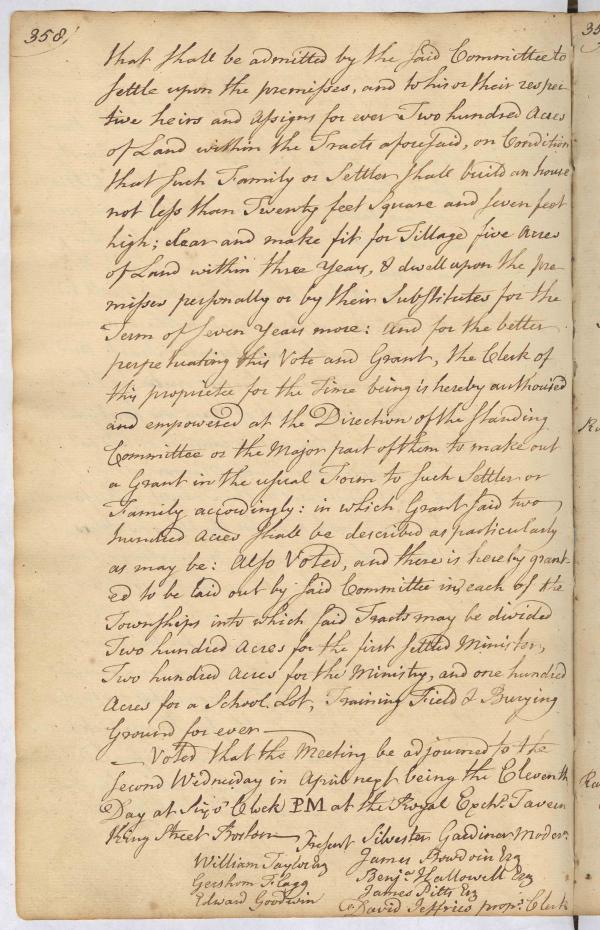 358,
that shall be admitted by the said Committee to
settle upon the premisses, and to his or their respec-
tive heirs and assigns for ever Two hundred Acres
of Land within the Tracts aforesaid, on Condition
that such Family or Settler shall build an house
not less than Twenty feet Square and seven feet
high; clear and make fit for Tillage five Acres
of Land within three Years, & dwell upon the pre-
misses personally or by their Substitutes for the
Term of seven Years more: and for the better
perpetuating this Vote and Grant, the Clerk of
this propriete for the Time being is hereby authorised
and empowered at the Direction of the Standing
Committee or the Major part of them to make out
a Grant in the usual Form to such Settler or
Family accordingly: in which Grant said two
hundred Acres shall be described as particularly
as may be: Also Voted, and there is hereby grant-
ed to be laid out by said Committee in each of the
Townships into which said Tracts may be divided
Two hundred Acres for the first settled Minister,
Two hundred Acres for the Ministry, and one hundred
Acres for a School Lot, Training Field & Burying
Ground for ever
Voted that the Meeting be adjourned to the
second Wednesday in April next being the Eleventh
Day at Six o'Clock PM at the Royal Exch. Tavern
King Street Boston
Present Silvester Gardiner Moder.
William Tayler Esq James Bowdoin Esq
Gershom Flagg Benja. Hallowell Esq
Edward Goodwin James Pitts Esq
David Jeffries propr. Clerk
35